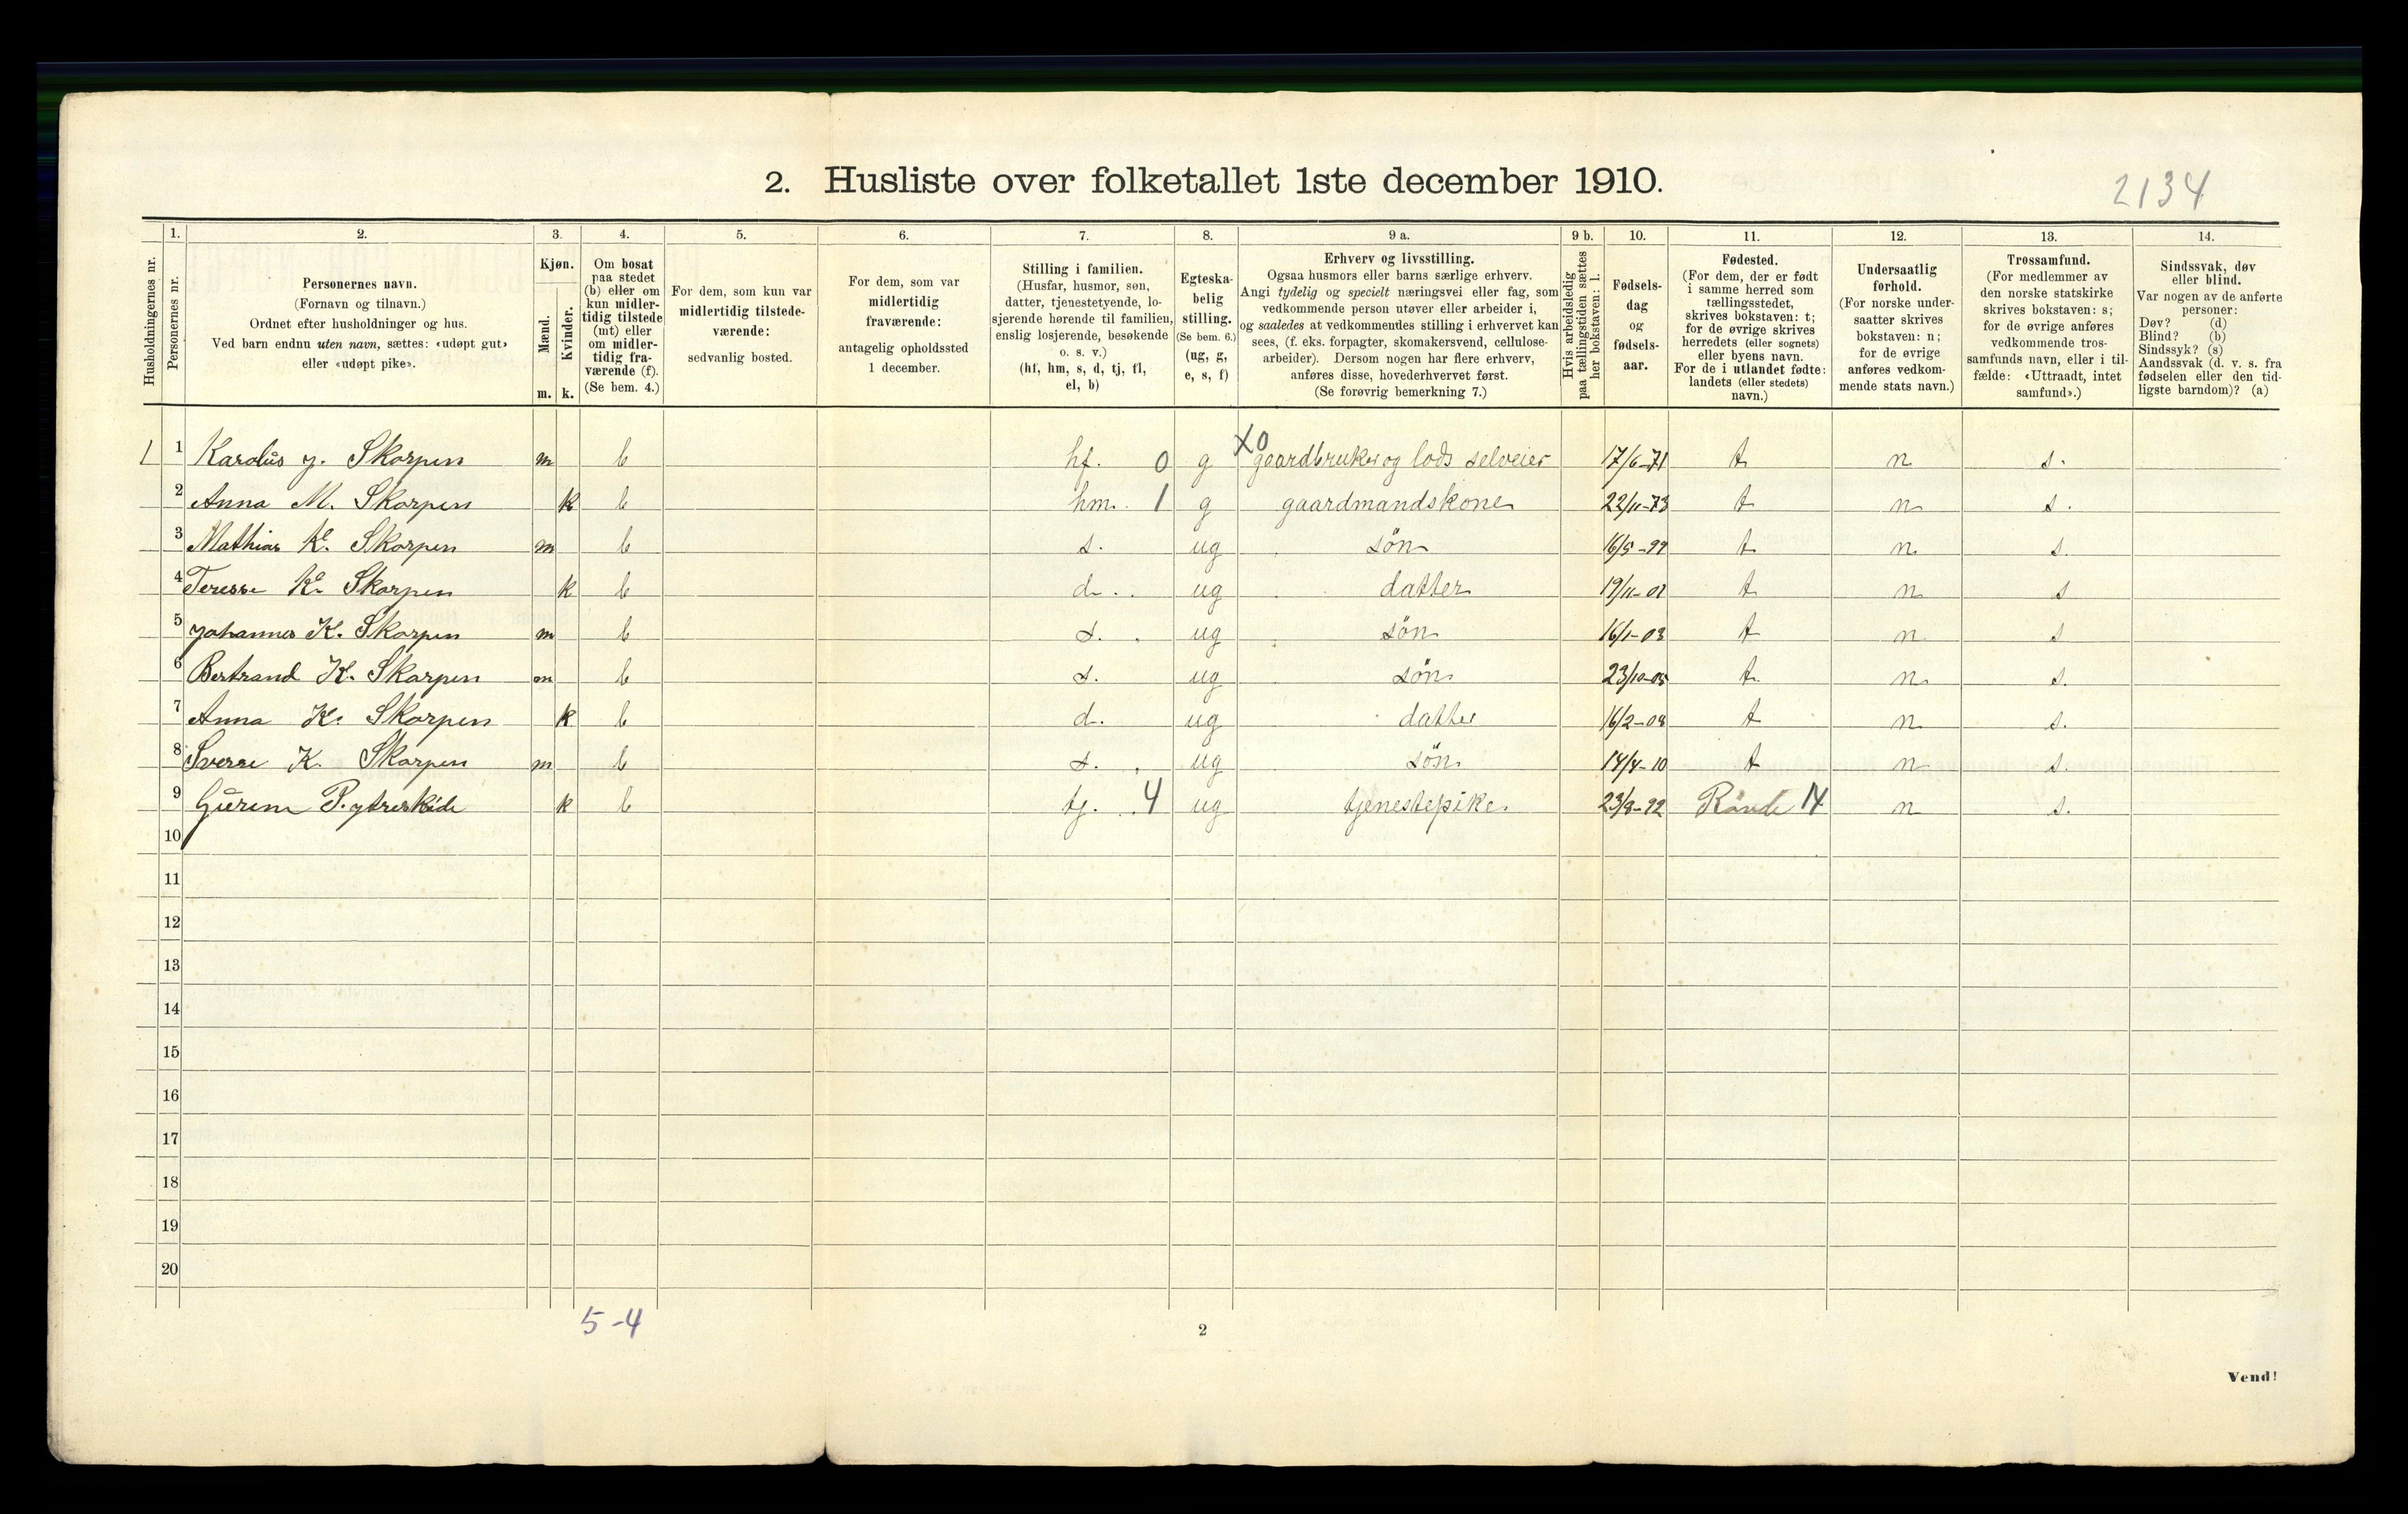 2. Husliste over folketallet 1ste december 1910.
2134
Husholdningernes nr.
1.
Personernes nr.
2.
Personernes navn.
(Fornavn og tilnavn.)
Ordnet efter husholdninger og hus.
Ved barn endnu uten navn, sættes: «udøpt gut»
eller «udøpt pike».
3.
Kjøn.
Mænd.
Kvinder.
m.
k.
4.
Om bosat
paa stedet
(b) eller om
kun midler-
tidig tilstede
(mt) eller
om midler-
tidig fra-
værende (f).
(Se bem. 4.)
5.
For dem, som kun var
midlertidig tilstede-
værende:
sedvanlig bosted.
6.
For dem, som var
midlertidig
fraværende:
antagelig opholdssted
1 december.
7.
Stilling i familien.
(Husfar, husmor, søn,
datter, tjenestetyende, lo-
sjerende hørende til familien,
enslig losjerende, besøkende
o. s. v.)
(hf, hm, s, d, tj, fl,
el, b)
8.
Egteska-
belig
stilling.
(Se bem. 6.)
(ug, g,
e, s, f)
9 a.
Erhverv og livsstilling.
Ogsaa husmors eller barns særlige erhverv.
Angi tydelig og specielt næringsvei eller fag, som
vedkommende person utøver eller arbeider i,
og saaledes at vedkommendes stilling i erhvervet kan
sees, (f. eks. forpagter, skomakersvend, cellulose-
arbeider). Dersom nogen har flere erhverv,
anføres disse, hovederhvervet først.
(Se forøvrig bemerkning 7.)
9 b.
Hvis arbeidsledig
paa tællingstiden sættes
her bokstaven: l.
10.
Fødsels-
dag
og
fødsels-
aar.
11.
Fødested.
(For dem, der er født
i samme herred som
tællingsstedet,
skrives bokstaven: t;
for de øvrige skrives
herredets (eller sognets)
eller byens navn.
For de i utlandet fødte:
landets (eller stedets)
navn.)
12.
Undersaatlig
forhold.
(For norske under-
saatter skrives
bokstaven: n;
for de øvrige
anføres vedkom-
mende stats navn.)
13.
Trossamfund.
(For medlemmer av
den norske statskirke
skrives bokstaven: s;
for de øvrige anføres
vedkommende tros-
samfunds navn, eller i til-
fælde: «Uttraadt, intet
samfund».)
14.
Sindssvak, døv
eller blind.
Var nogen av de anførte
personer:
Døv? (d)
Blind? (b)
Sindssyk? (s)
Aandssvak (d. v. s. fra
fødselen eller den tid-
ligste barndom)? (a)
1 1 Karolus J. Skorpen m b hf. 0 g X0 gaardbruker og lods selveier 17/6-71 t n s.
2 Anna M. Skorpen k b hm. 1 g gaardmandskone 22/11-73 t n s.
3 Mathias K. Skorpen m b s. ug søn 16/5-99 t n s.
4 Teresse K. Skorpen k b d. ug datter 19/11-01 t n s
5 Johannes K. Skorpen m b s. ug søn 16/1-03 t n s
6 Bertrand K. Skorpen m b s. ug søn 23/10-05 t n s.
7 Anna K. Skorpen k b d. ug datter 16/2-08 t n s.
8 Sverre K. Skorpen m b s. ug søn 14/4-10 t n s.
9 Gurine P. ytreskide k b tj. 4 ug tjenestepike 23/8-92 Rövde 14 n s.
10
11
12
13
14
15
16
17
18
19
20
5-4
2
Vend!